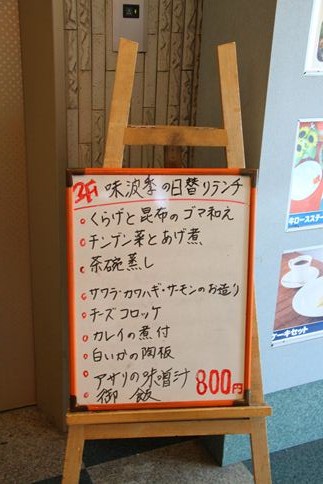 味波季の日替りランチ
くらげと昆布のゴマ和え
チンゲン菜とあげ煮
茶碗蒸し
サワラ・カワハギ・サーモンのお造り
チーズコロッケ
カレイの煮付
白いかの陶板
アサリの味噌汁 800円
御飯
牛ロースステ
ケーキセット